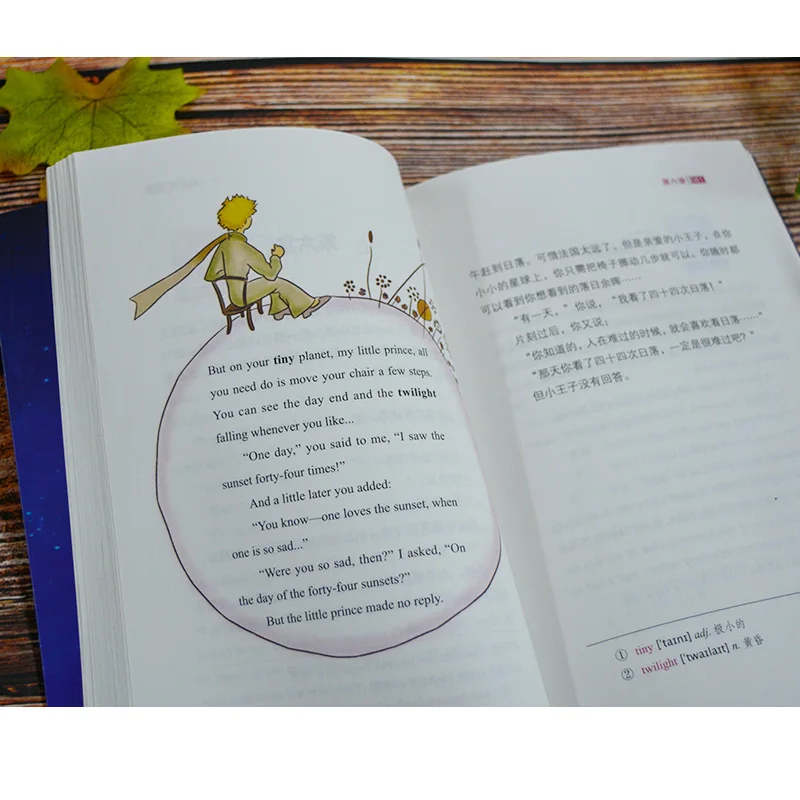 But on your tiny planet, my little prince, all
you need do is move your chair a few steps.
You can see the day end and the twilight
falling whenever you like...
“One day,” you said to me, “I saw the
sunset forty-four times!”
And a little later you added:
“You know—one loves the sunset, when
one is so sad...”
“Were you so sad, then?” I asked, “On
the day of the forty-four sunsets?”
But the little prince made no reply.
第六章
午赶到日落。可惜法国太远了。但是亲爱的小王子，在你
小小的星球上，你只需把椅子挪动几步就可以。你随时都
可以看到你想看到的落日余晖……
“有一天，”你说，“我看了四十四次日落！”
片刻过后，你又说：
“你知道的，人在难过的时候，就会喜欢看日落……”
“那天你看了四十四次日落，一定是很难过吧？”
但小王子没有回答。
① tiny ['taɪnɪ] adj. 极小的
② twilight ['twaɪlaɪt] n. 黄昏